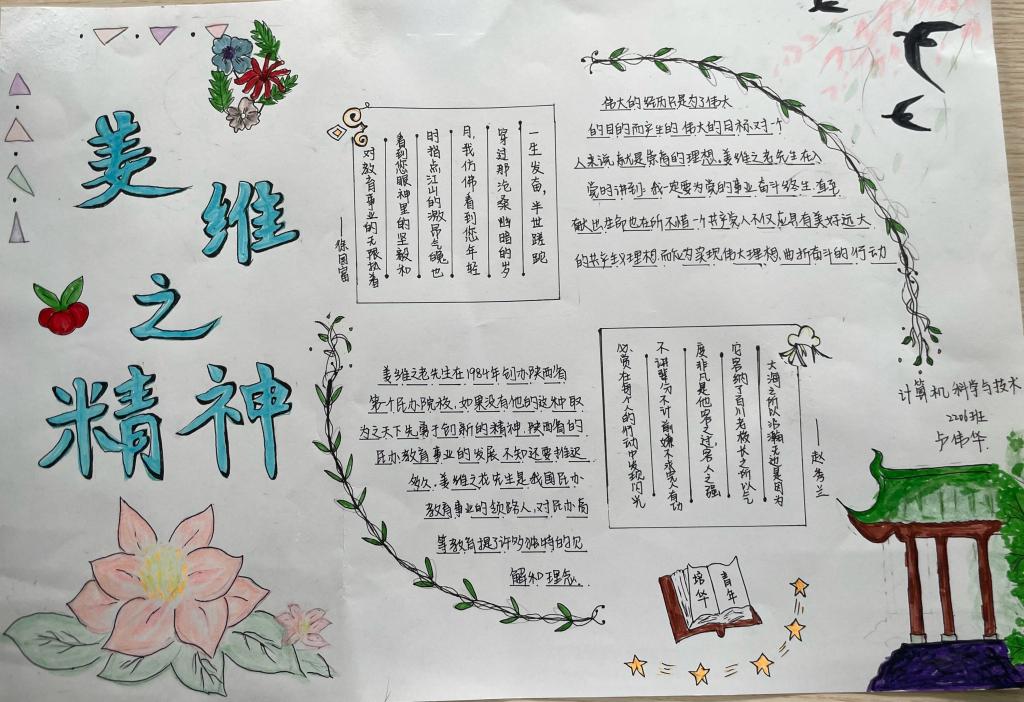 姜维之精神
一生发奋，半世蹉跎
穿过那沧桑幽暗的岁
月，我仿佛看到您年轻
时指点江山的激昂气魄也
看到您眼神里的坚毅和
对教育事业的无限热着
——徐国富
伟大的经历只是为了伟大
的目的而产生的伟大的目标，对一个
人来说，就是崇高的理想。姜维之老先生在入
党时讲到：我一定要为党的事业奋斗终生，直至
献出生命也在所不惜一个共产党人不仅应具有美好远大
的共产主义理想，而应为实现伟大理想，曲折奋斗的行动
姜维之老先生在1984年创办陕西省
第一个民办院校，如果没有他的这种敢
为之天下先勇于创新的精神，陕西省的
民办教育事业的发展，不知还要推迟
多久，姜维之老先生是我国民办
教育事业的领路人，对民办高
等教育提了许多独特的见
解和理念。
大海之所以浩瀚无边是因为
它容纳了百川老校长之所以气
度非凡是他容之过，容人之强
不讲辈分不计前嫌不求完人有功
必赏在每个人的行动中发现闪光
——赵秀兰
计算机科学与技术
2206班
卢伟华
培华
青年